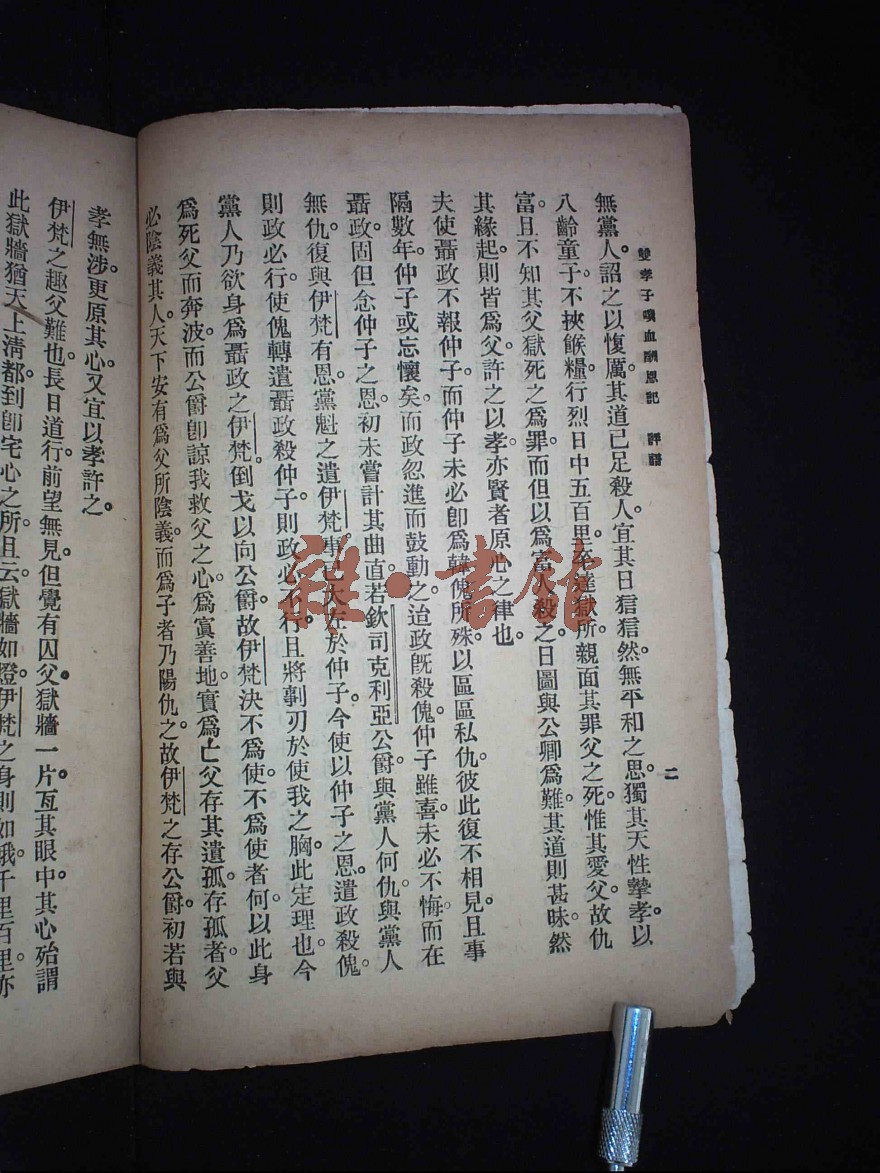 雙孝子噀血酬恩記　評語
二
無黨人。詔之以愎厲。其道已足殺人。宜其日狺狺然。無平和之思。獨其天性摯孝。以
八齡童子。不挾餱糧。行烈日中五百里。至達獄所。親面其罪父之死。惟其愛父。故仇
富。且不知其父獄死之爲罪。而但以爲富人殺之。日圖與公卿爲難。其道則甚昧。然
其緣起。則皆爲父。許之以孝。亦賢者原心之律也。
夫使聶政不報仲子。而仲子未必卽爲韓傀所殊。以區區私仇。彼此復不相見。且事
隔數年。仲子或忘懷矣。而政忽進而鼓動之。迨政旣殺傀。仲子雖喜。未必不悔。而在
聶政。固但念仲子之恩。初未嘗計其曲直。若欽司克利亞公爵。與黨人何仇。與黨人
無仇。復與伊梵有恩。黨魁之遣伊梵。事已大左於仲子。今使以仲子之恩。遣政殺傀。
則政必行。使傀轉遣聶政殺仲子。則政必不行。且將剚刃於使我之胸。此定理也。今
黨人乃欲身爲聶政之伊梵。倒戈以向公爵。故伊梵決不爲使。不爲使者。何以此身
爲死父而奔波。而公爵卽諒我救父之心。爲寘善地。實爲亡父存其遺孤。存孤者。父
必陰義其人。天下安有爲父所陰義。而爲子者乃陽仇之。故伊梵之存公爵。初若與
孝無涉。更原其心。又宜以孝許之。
伊梵之趣父難也。長日道行。前望無見。但覺有囚父獄牆一片。亙其眼中。其心殆謂
此獄牆猶天上淸都。到卽宅心之所。且云獄牆如燈。伊梵之身則如蛾。千里百里。亦